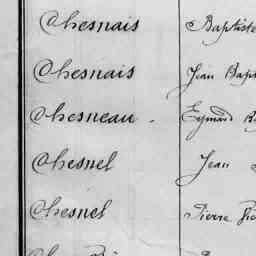 Chesnais Baptiste
Chesnais Jean Bap
Chesneau . Eymard
Chesnel Jean
Chesnel Pierre